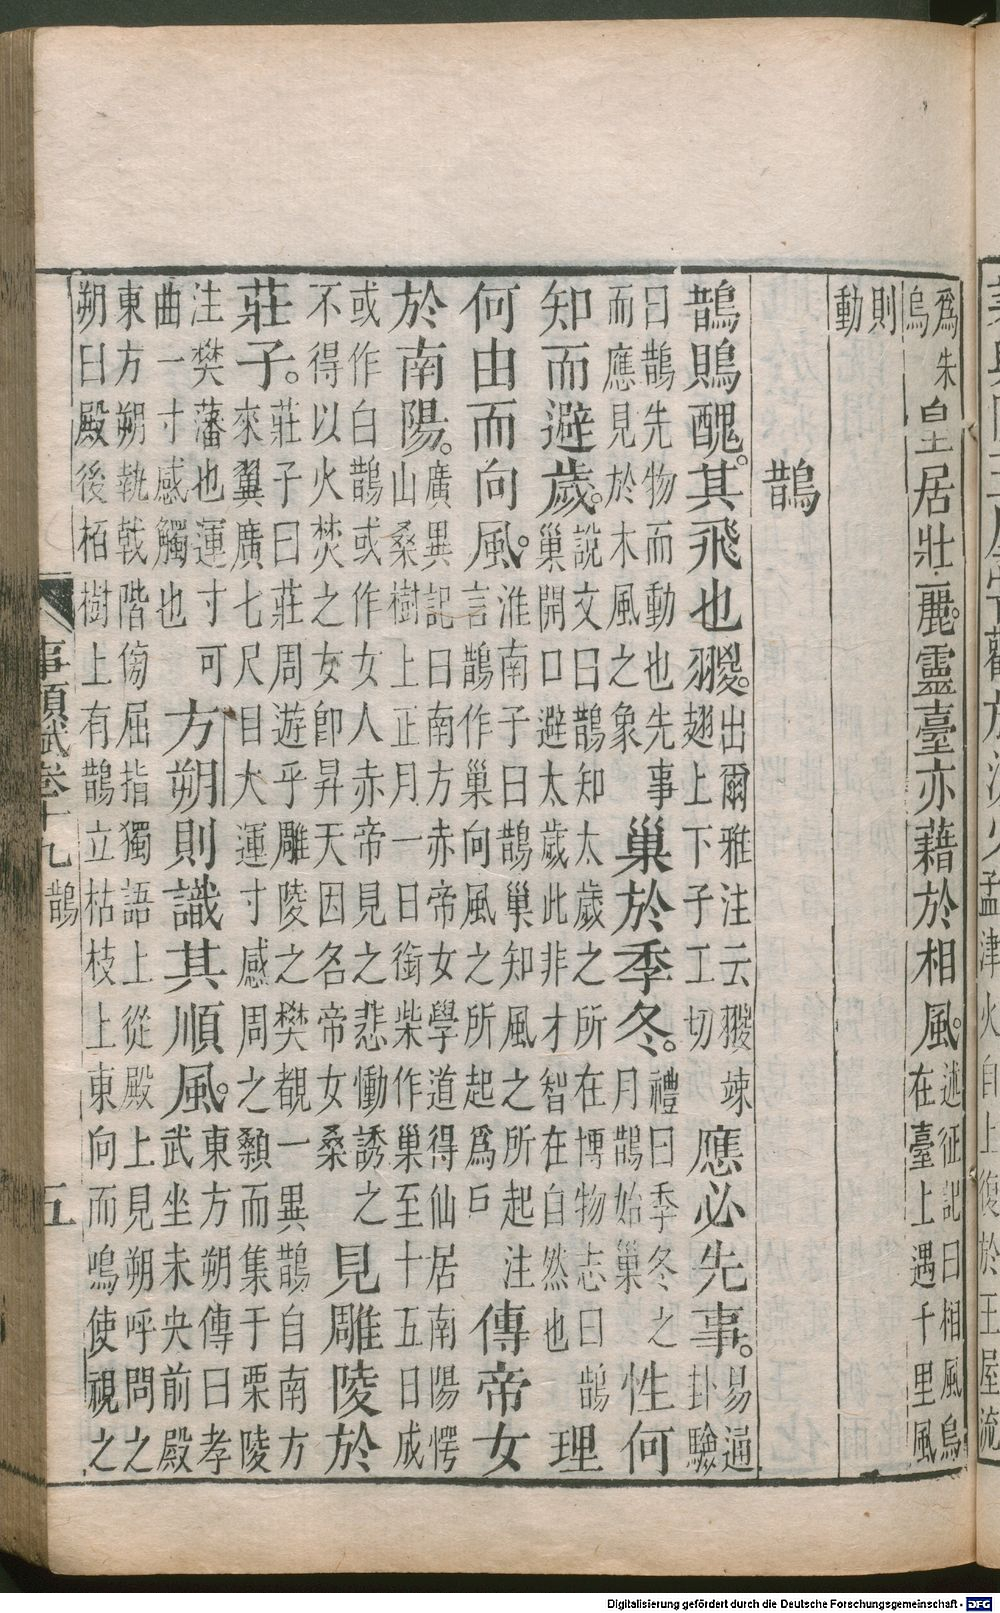 爲朱皇居壯麗靈臺亦藉於相風述征記曰相風烏
烏在臺上遇千里風
則
動
鵲
鵲鵙醜其飛也翪出爾雅注云翪竦翅上下子工切應必先事易通卦驗
曰鵲先物而動也先事而應見於木風之象巢於季冬禮曰季冬之月鵲始巢性何
知而避歲說文曰鵲知太歲之所在博物志曰鵲巢開口避太歲此非才智在自然也理
何由而向風淮南子曰鵲巢知風之所起注言鵲作巢向風之所起爲戶傳帝女
於南陽廣異記曰南方赤帝女學道得仙居南陽愕山桑樹上正月一日銜柴作巢至十五日成
或作白鵲或作女人赤帝見之悲慟誘之不得以火焚之女卽昇天因名帝女桑見雕陵於
莊子莊子曰莊周遊乎雕陵之樊覩一異鵲自南方來翼廣七尺目大運寸感周之顙而集于栗陵
注樊藩也運寸可曲一寸感觸也方朔則識其順風東方朔傳曰孝武坐未央前殿
東方朔執戟階傍屈指獨語上從殿上見朔呼問之
朔曰殿後栢樹上有鵲立枯枝上東向而鳴使視之
事類賦卷十九 鵲 五
Digitalisierung gefördert durch die Deutsche Forschungsgemeinschaft - DFG